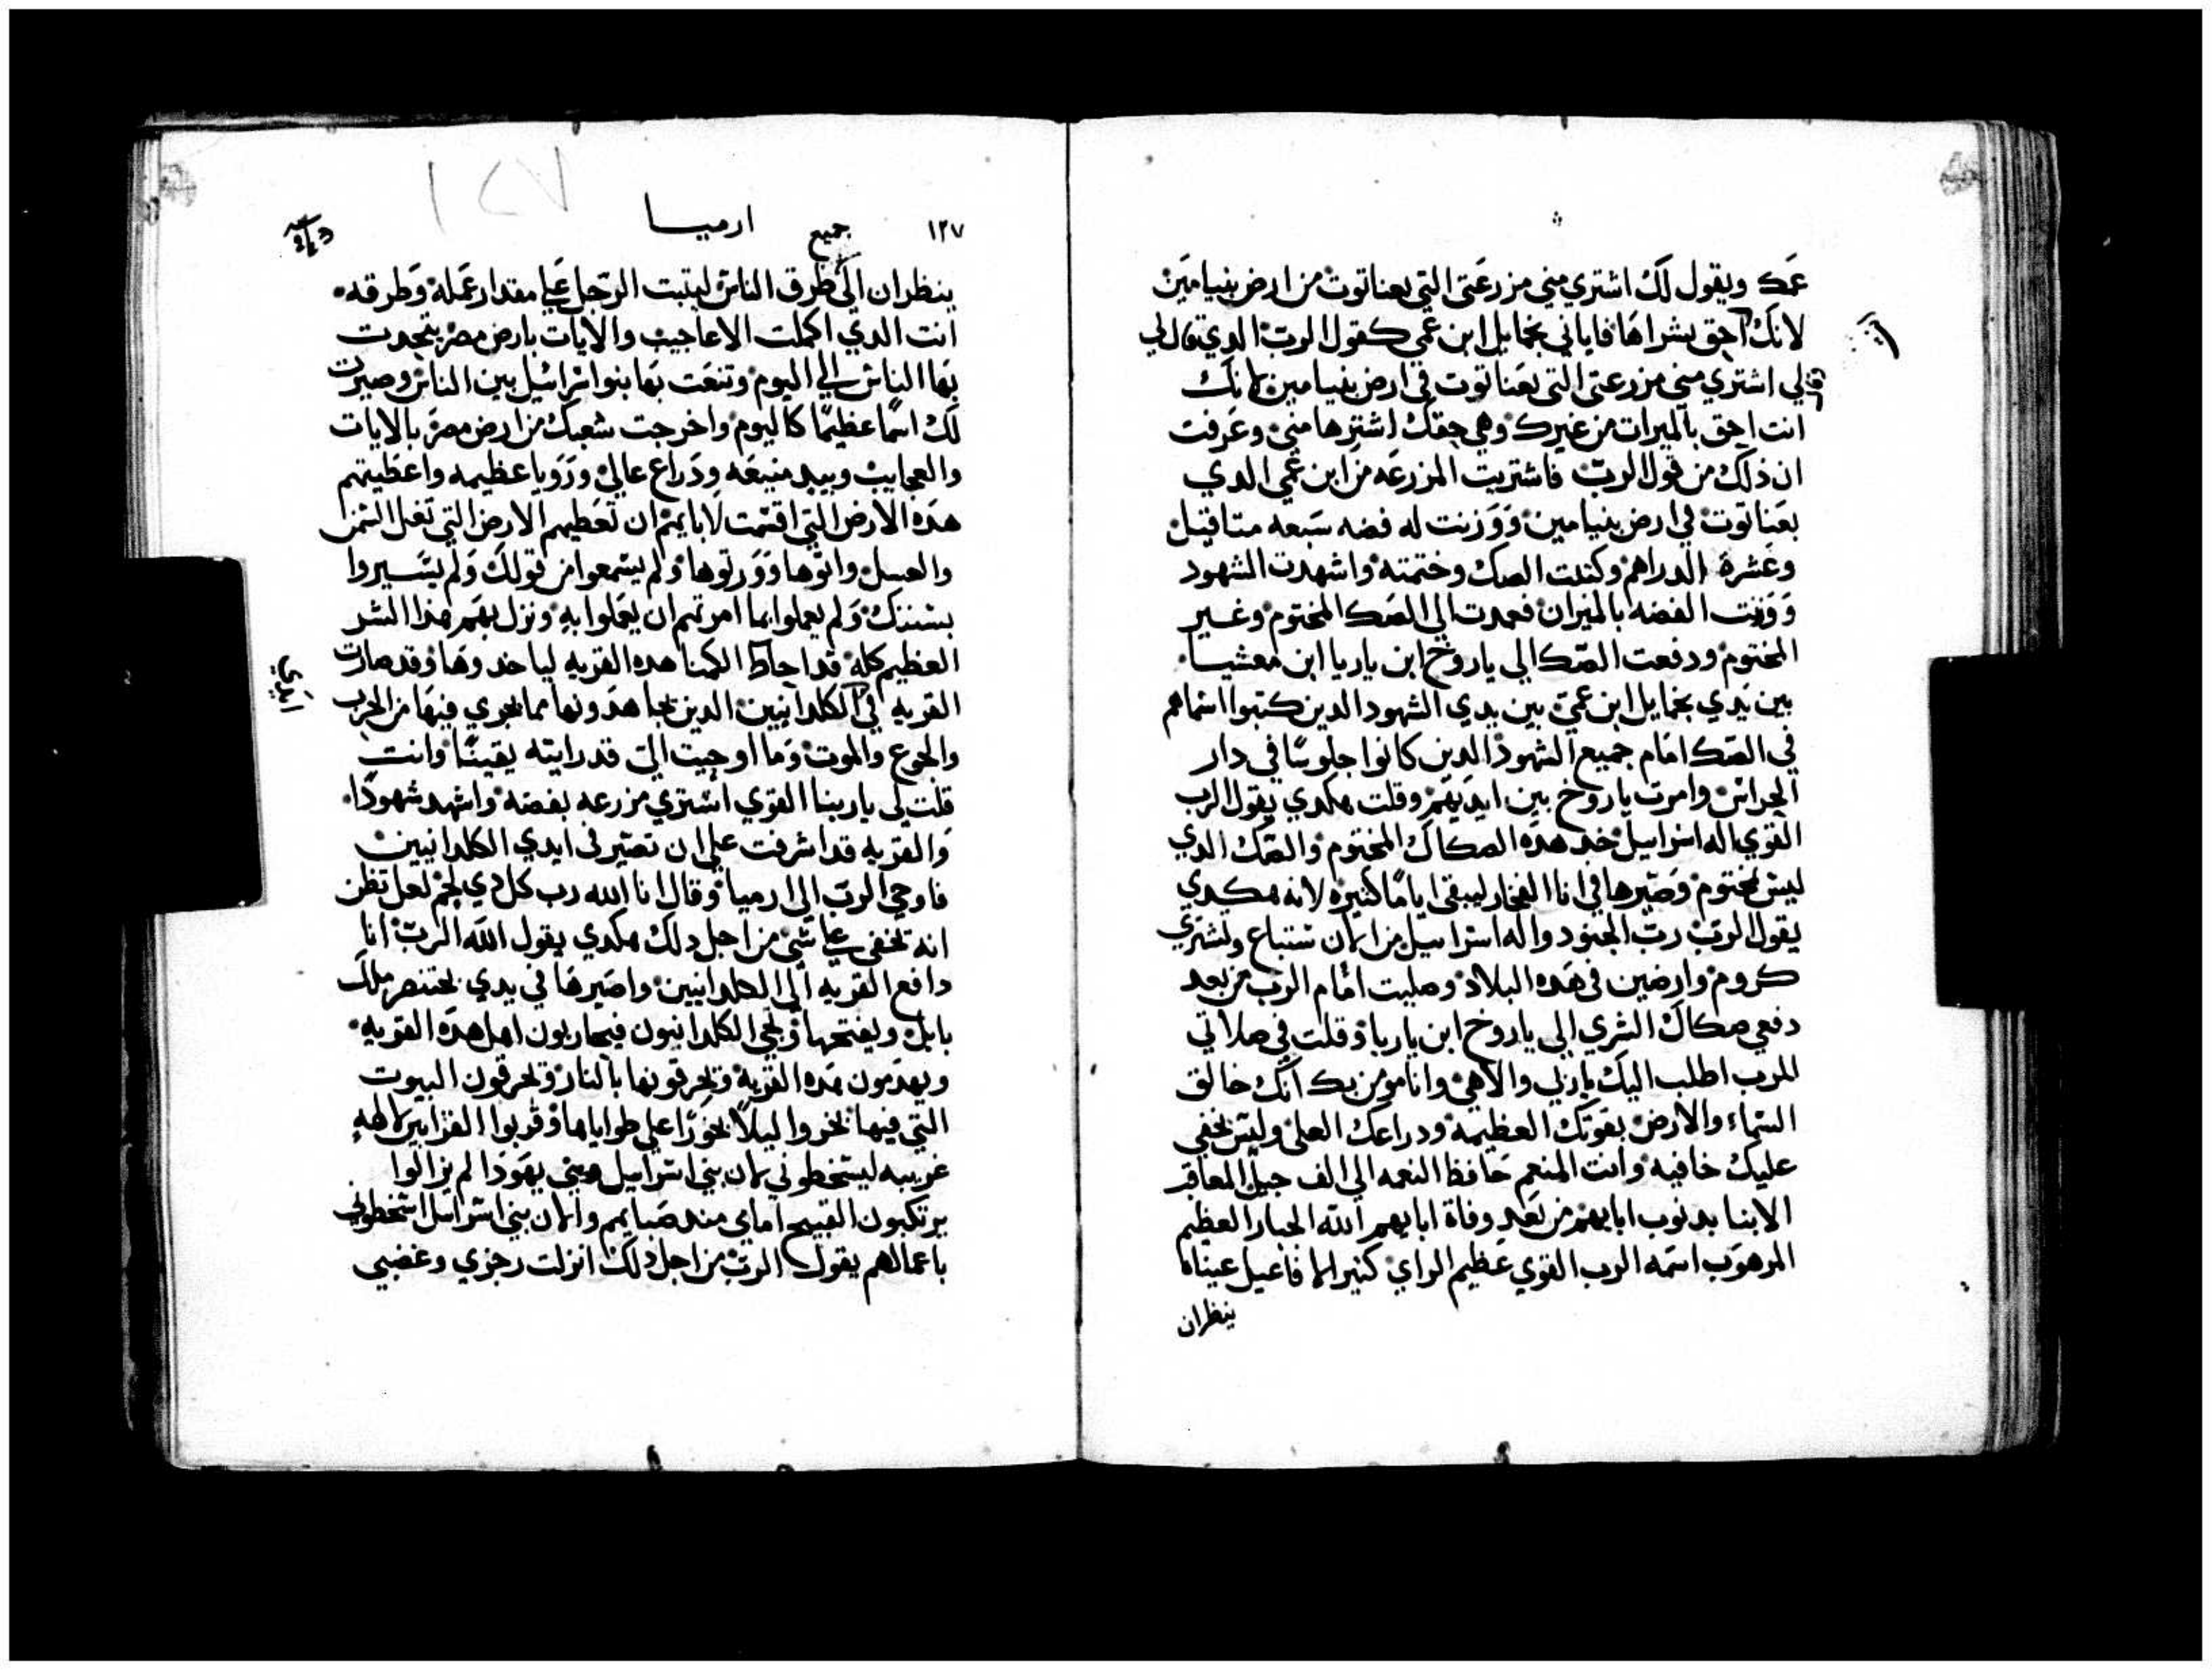 عمك ويقول لك اشتري مني مزرعتي التي بعناتوت من ارض بنيامين
لانك احق بشراها فاباني بخمايل ابن عمي كقول الرب الدي قال لي
قالي اشتري مني مزرعتي التي بعناتوت في ارض بنيامين لانك
انت احق بالميرات من غيرك وهي حقك اشترها مني وعرفت
ان ذلك من قول الرب فاشتريت المزرعه من ابن عمي الدي
بعناتوت في ارض بنيامين ووزنت له فضه سبعه متاقيل
وعشرة الدراهم وكتبت الصك وختمته واشهدت الشهود
ووزنت الفضه بالميزان فعمدت الي الصك المختوم وغير
المختوم ودفعت الصك الي ياروخ ابن ياريا ابن معشيا
بين يدي بخمايل ابن عمي بين يدي الشهود الدين كتبوا اسماهم
في الصك امام جميع الشهود الدين كانوا جلوسا في دار
الحراس وامرت ياروخ بين ايديهم وقلت هكدي يقول الرب
القوي اله اسراييل خد هده الصكاك المختوم والصك الدي
ليس بمختوم وصيرها في انا الفخار ليبقي اياما كثيره لانه هكدي
يقول الرب رب الجنود واله اسراييل من الان ستباع وتشتري
كروم وارضين في هده البلاد وصليت امام الرب من بعد
دفعي صكاك الشري الي ياروخ ابن ياريا وقلت في صلاتي
للرب اطلب اليك ياربي والاهي وانا مومن بك انك خالق
السماء والارض بقوتك العظيمه ودراعك العلي وليس يخفي
عليك خافيه وانت المنعم حافظ النعمه الي الف جيل المعاقب
الابنا بدنوب ابايهم من بعد وفاة ابايهم الله الجبار العظيم
المرهوب اسمه الرب القوي عظيم الراي كثير الافاعيل عيناك
ينظران
١٢٧ جميع ارميا
١٢٧
ينظران الي طرق الناس ليثبت الرجل علي مقدار عمله وطرقه
انت الدي اكملت الاعاجيب والايات بارض مصر يتحدت
بها الناس الي اليوم وتنعت بها بنوا اسراييل بين الناس وصيرت
لك اسما عظيما كاليوم واخرجت شعبك من ارض مصر بالايات
والعجايب وبيد منيعه ودراع عالي ورويا عظيمه واعطيتهم
هده الارض التي اقسمت لابايهم ان تعطيهم الارض التي تغل السمن
والعسل واتوها وورتوها ولم يسمعوا من قولك ولم يسيروا
بسننك ولم يعملوا بما امرتهم ان يعملوا به ونزل بهم هذا الشر
العظيم كله قد احاط الكمنا هده القريه لياخدوها وقد صارت
القريه في الكلدانيين الدين يجاهدونها مما يجري فيها من الحرب
ايدي
والجوع والموت وما اوحيت الي قد رايته يقينا وانت
قلت لي ياربنا القوي اشتري مزرعه بفضه واشهد شهودا
والقريه قد اشرفت علي ان تصير في ايدي الكلدانيين
فاوحي الرب الي ارميا وقال انا الله رب كل دي لحم لعل تظن
انه يخفي علي شي من اجل دلك هكدي يقول الله الرب انا
دافع القريه الي الكلدانيين واصيرها في يدي بختنصر ملك
بابل ويفتحها ويجي الكلدانيون فيحاربون اهل هده القريه
ويهدمون هده القريه ويحرقونها بالنار ويحرقون البيوت
التي فيها بخروا لبيلا بخورا علي طواياها وقربوا القرابين لالهه
غريبه ليسخطوني لان بني اسراييل وبني يهودا لم يزالوا
يرتكبون القبيح امامي مند صبايهم والان بني اسراييل اسخطوني
باعمالهم يقول الرب من اجل دلك انزلت رجزي وغضبي